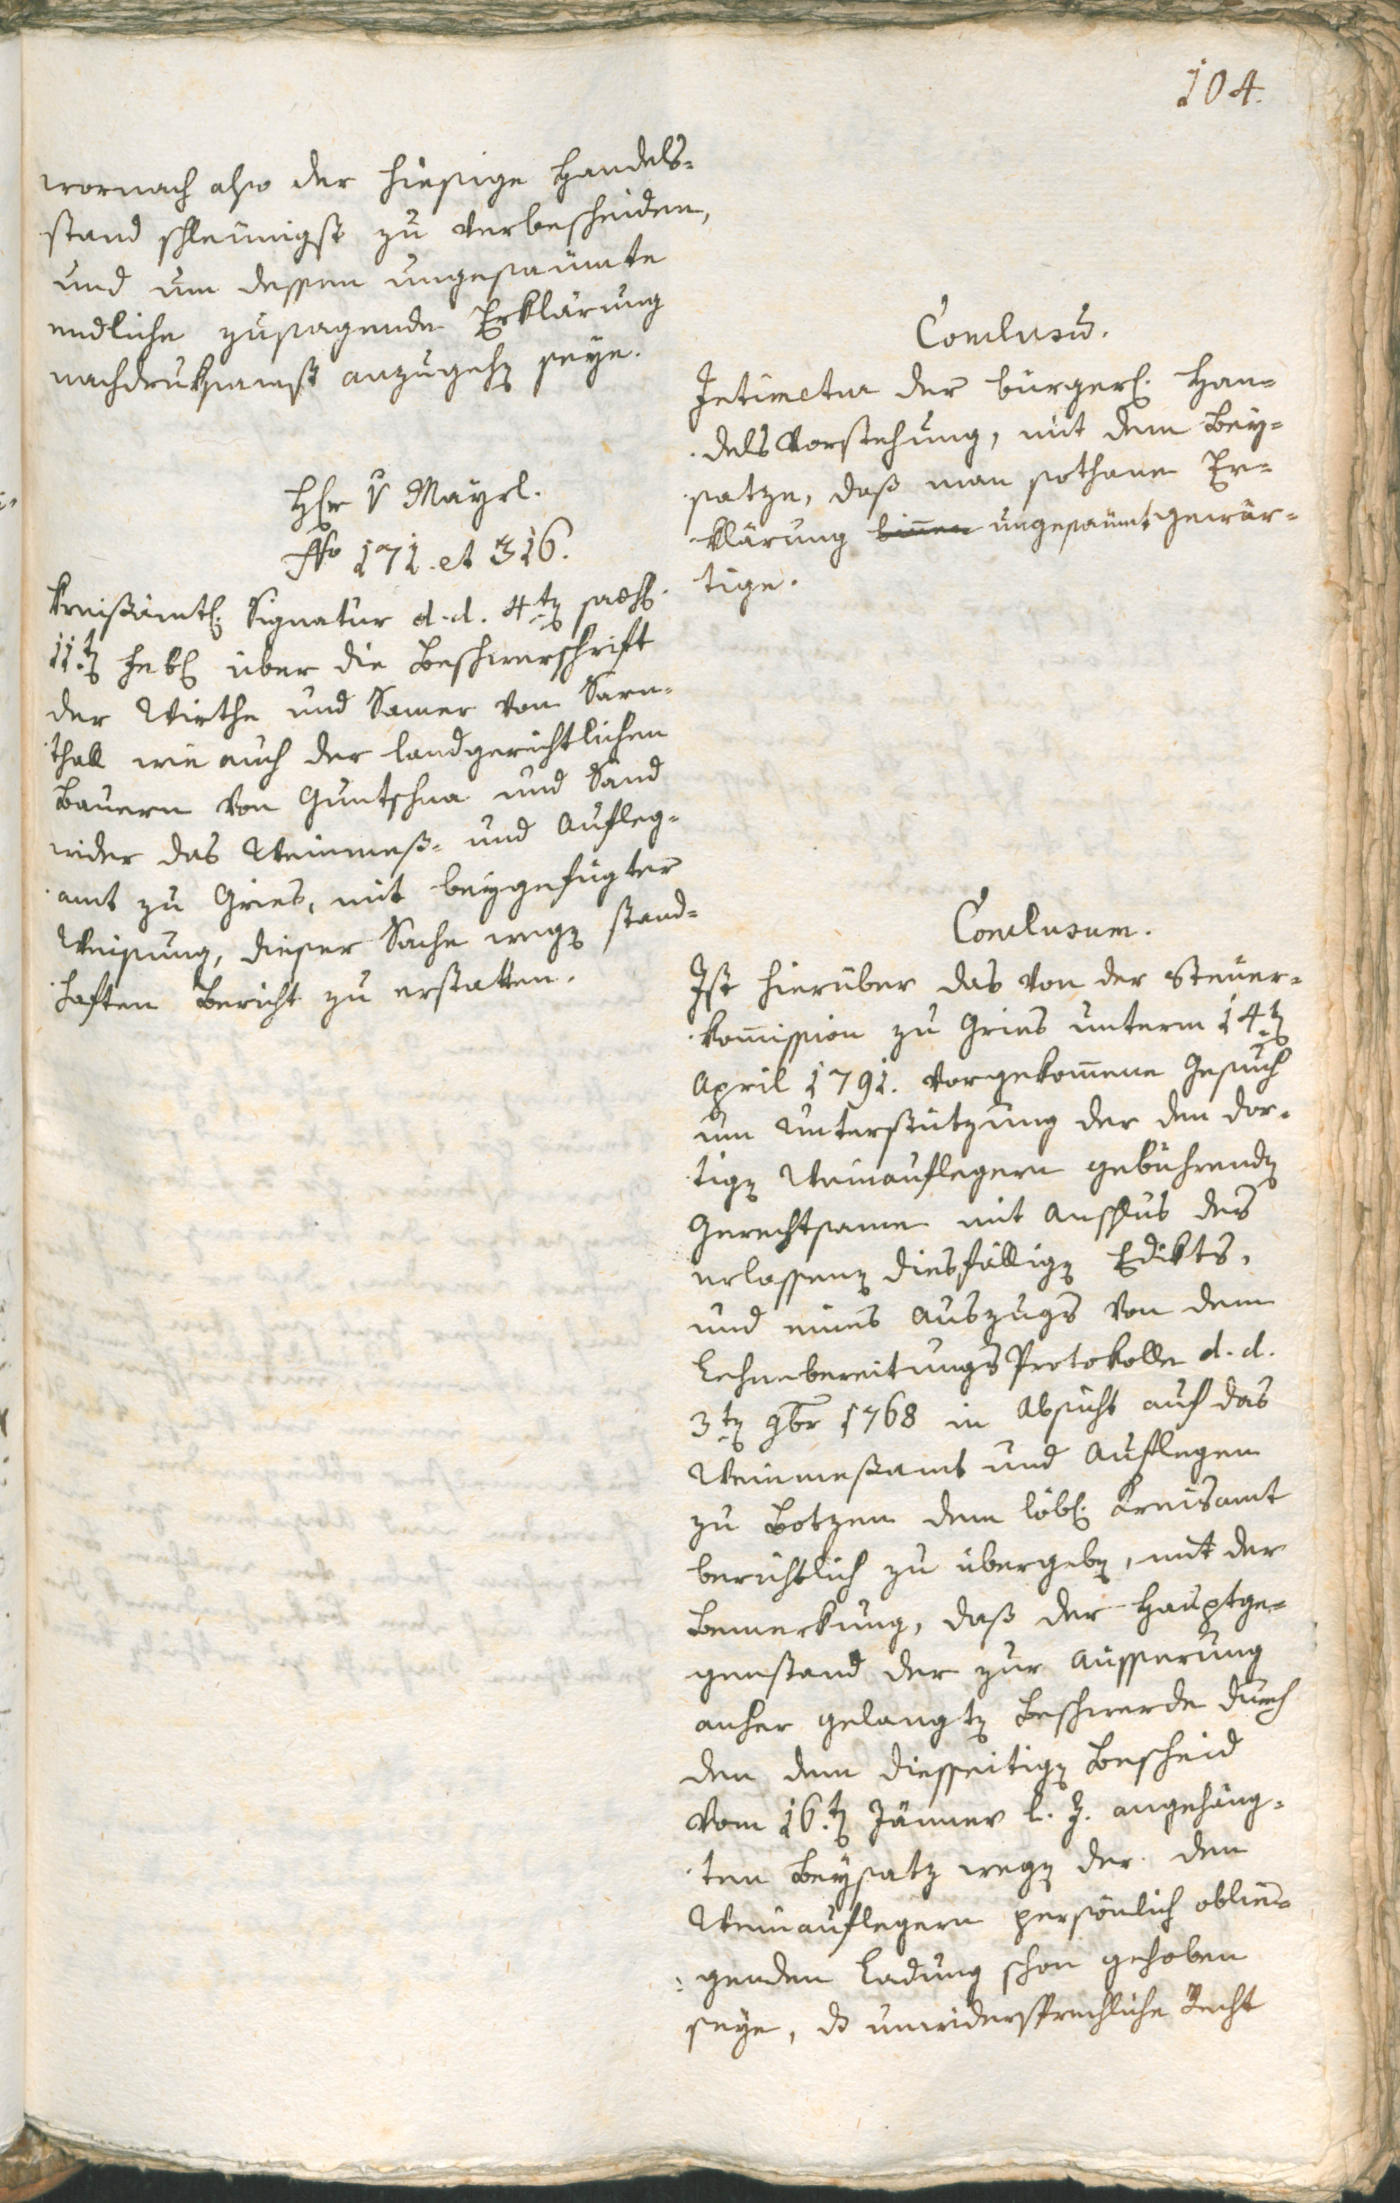 104.
wornach also der hiesige Handels-
stand schleünigst zu verbescheiden,
und um dessen ungesäumte
endliche zusagende Erklärung
nachdruksamst anzugehen seye.
Conclusum.
Intimetur der bürgerl. Han-
delsVorstehung, mit dem Bey-
satze, daß man sothane Er-
klärung binnen ungesäumt gewär-
tige.
Herr v Mayrl.
ffo 171. et 316.
Kreisämtl. Signatur d. d. 4ten
11ten Febr über die Beschwerschrift
der Wirthe und Samer von Sarn-
thall wie auch der landgerichtlichen
Bauern von Guntschna und Sand
wider das Weinmeß- und Aufleg-
amt zu Gries, mit beygefügter
Weisung, dieser Sache wegen stand-
haften Bericht zu erstatten.
Conclusum.
Ist hierüber das von der Steuer-
kommission zu Gries unterm 14ten
April 1791. vorgekommene Gesuch
um Unterstützung der den dor-
tigen Weinauflegern gebührenden
Gerechtsame mit Anschlus des
erlassenen diesfälligen Edikts,
und eines Auszugs von dem
LehnbereitungsProtokolle d. d.
3ten 9br 1768 in Absicht auf das
Weinmeßamt und Auflegen
zu Botzen dem löbl. Kreisamt
berichtlich zu übergeben, mit der
Bemerkung, daß der Hauptge-
genstand der zur Äusserung
anher gelangten Beschwerde durch
den dem diesseitigen Bescheid
vom 16ten Jänner l. J. angehäng-
ten Beysatz wegen der den
Weinauflegern persönlich oblie-
genden Ladung schon gehoben
seye, das unwidersprechliche Recht